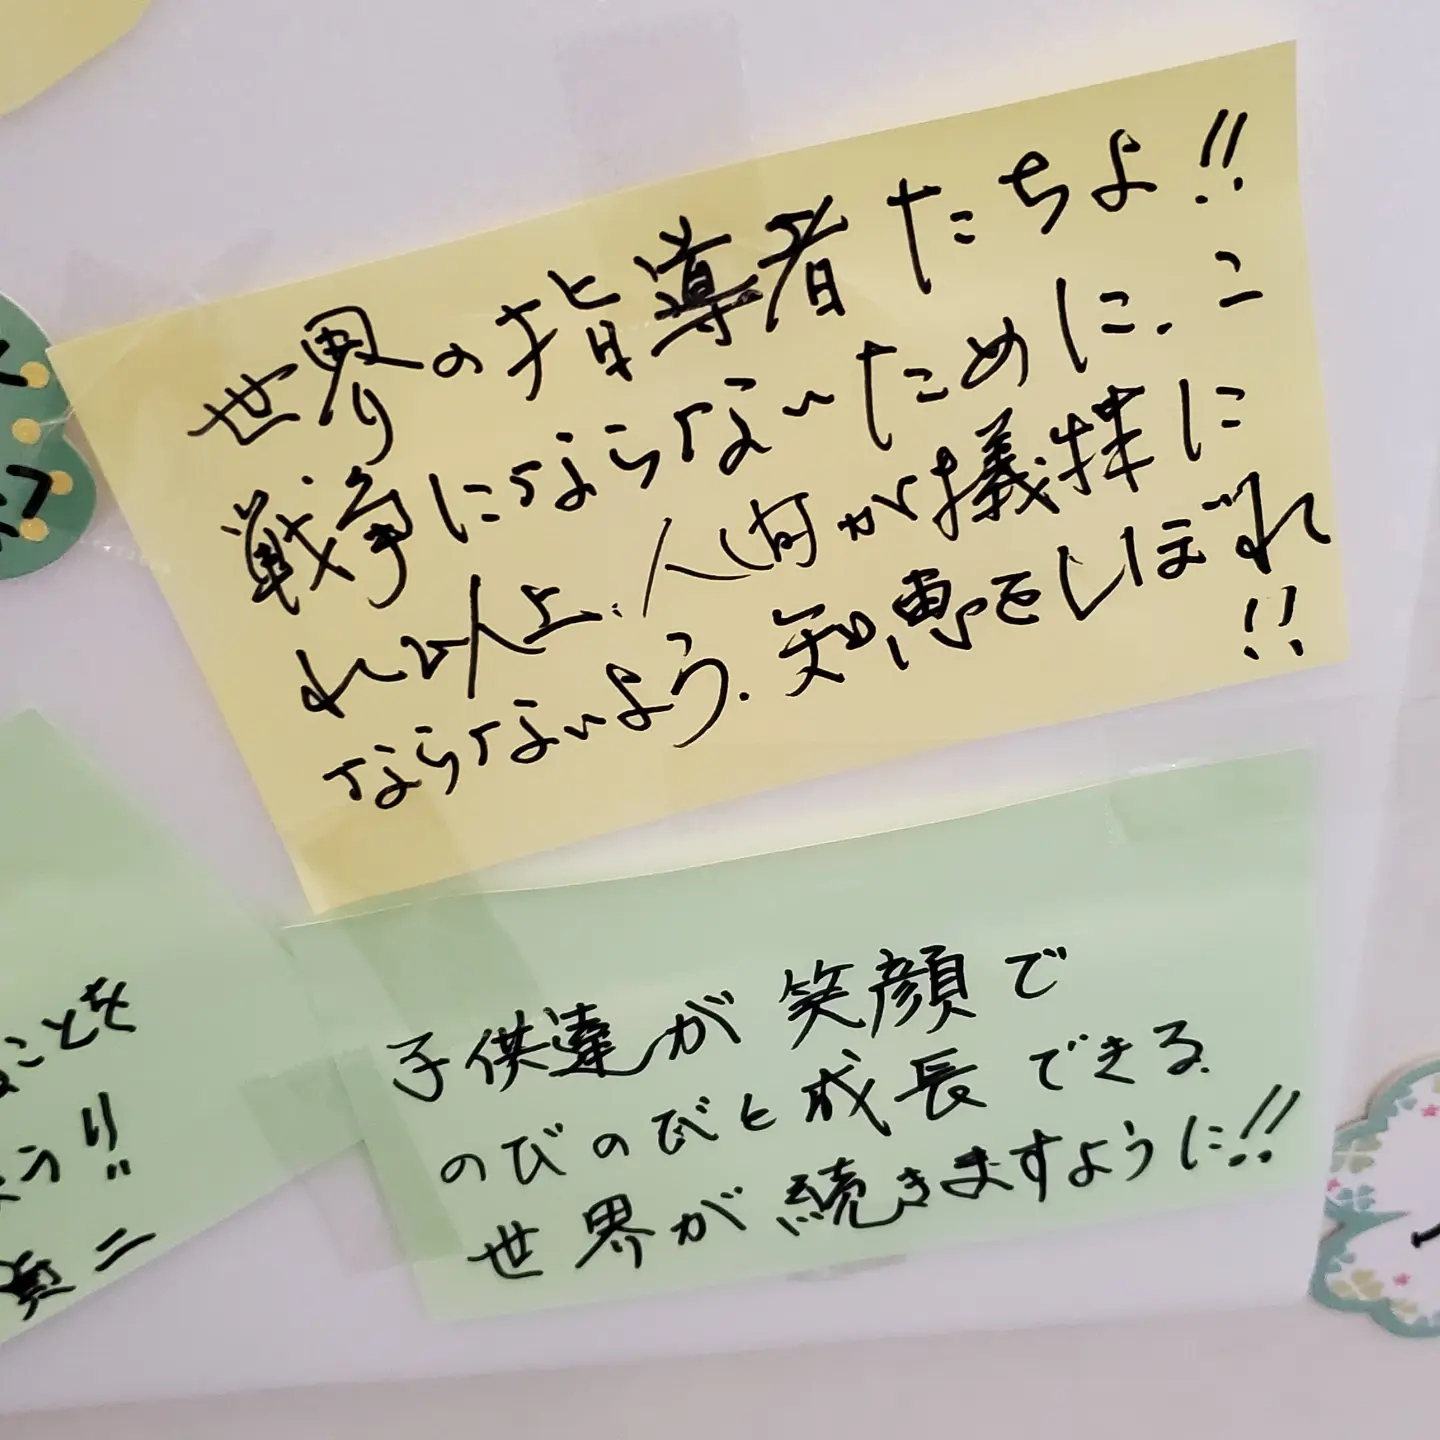 世界の指導者たちよ!!
戦争にならないために、こ
れ以上、人間が犠牲に
ならないよう、知恵をしぼれ
!!
子供達が笑顔で
のびのびと成長できる
世界が続きますように!!
ことを
!!
二